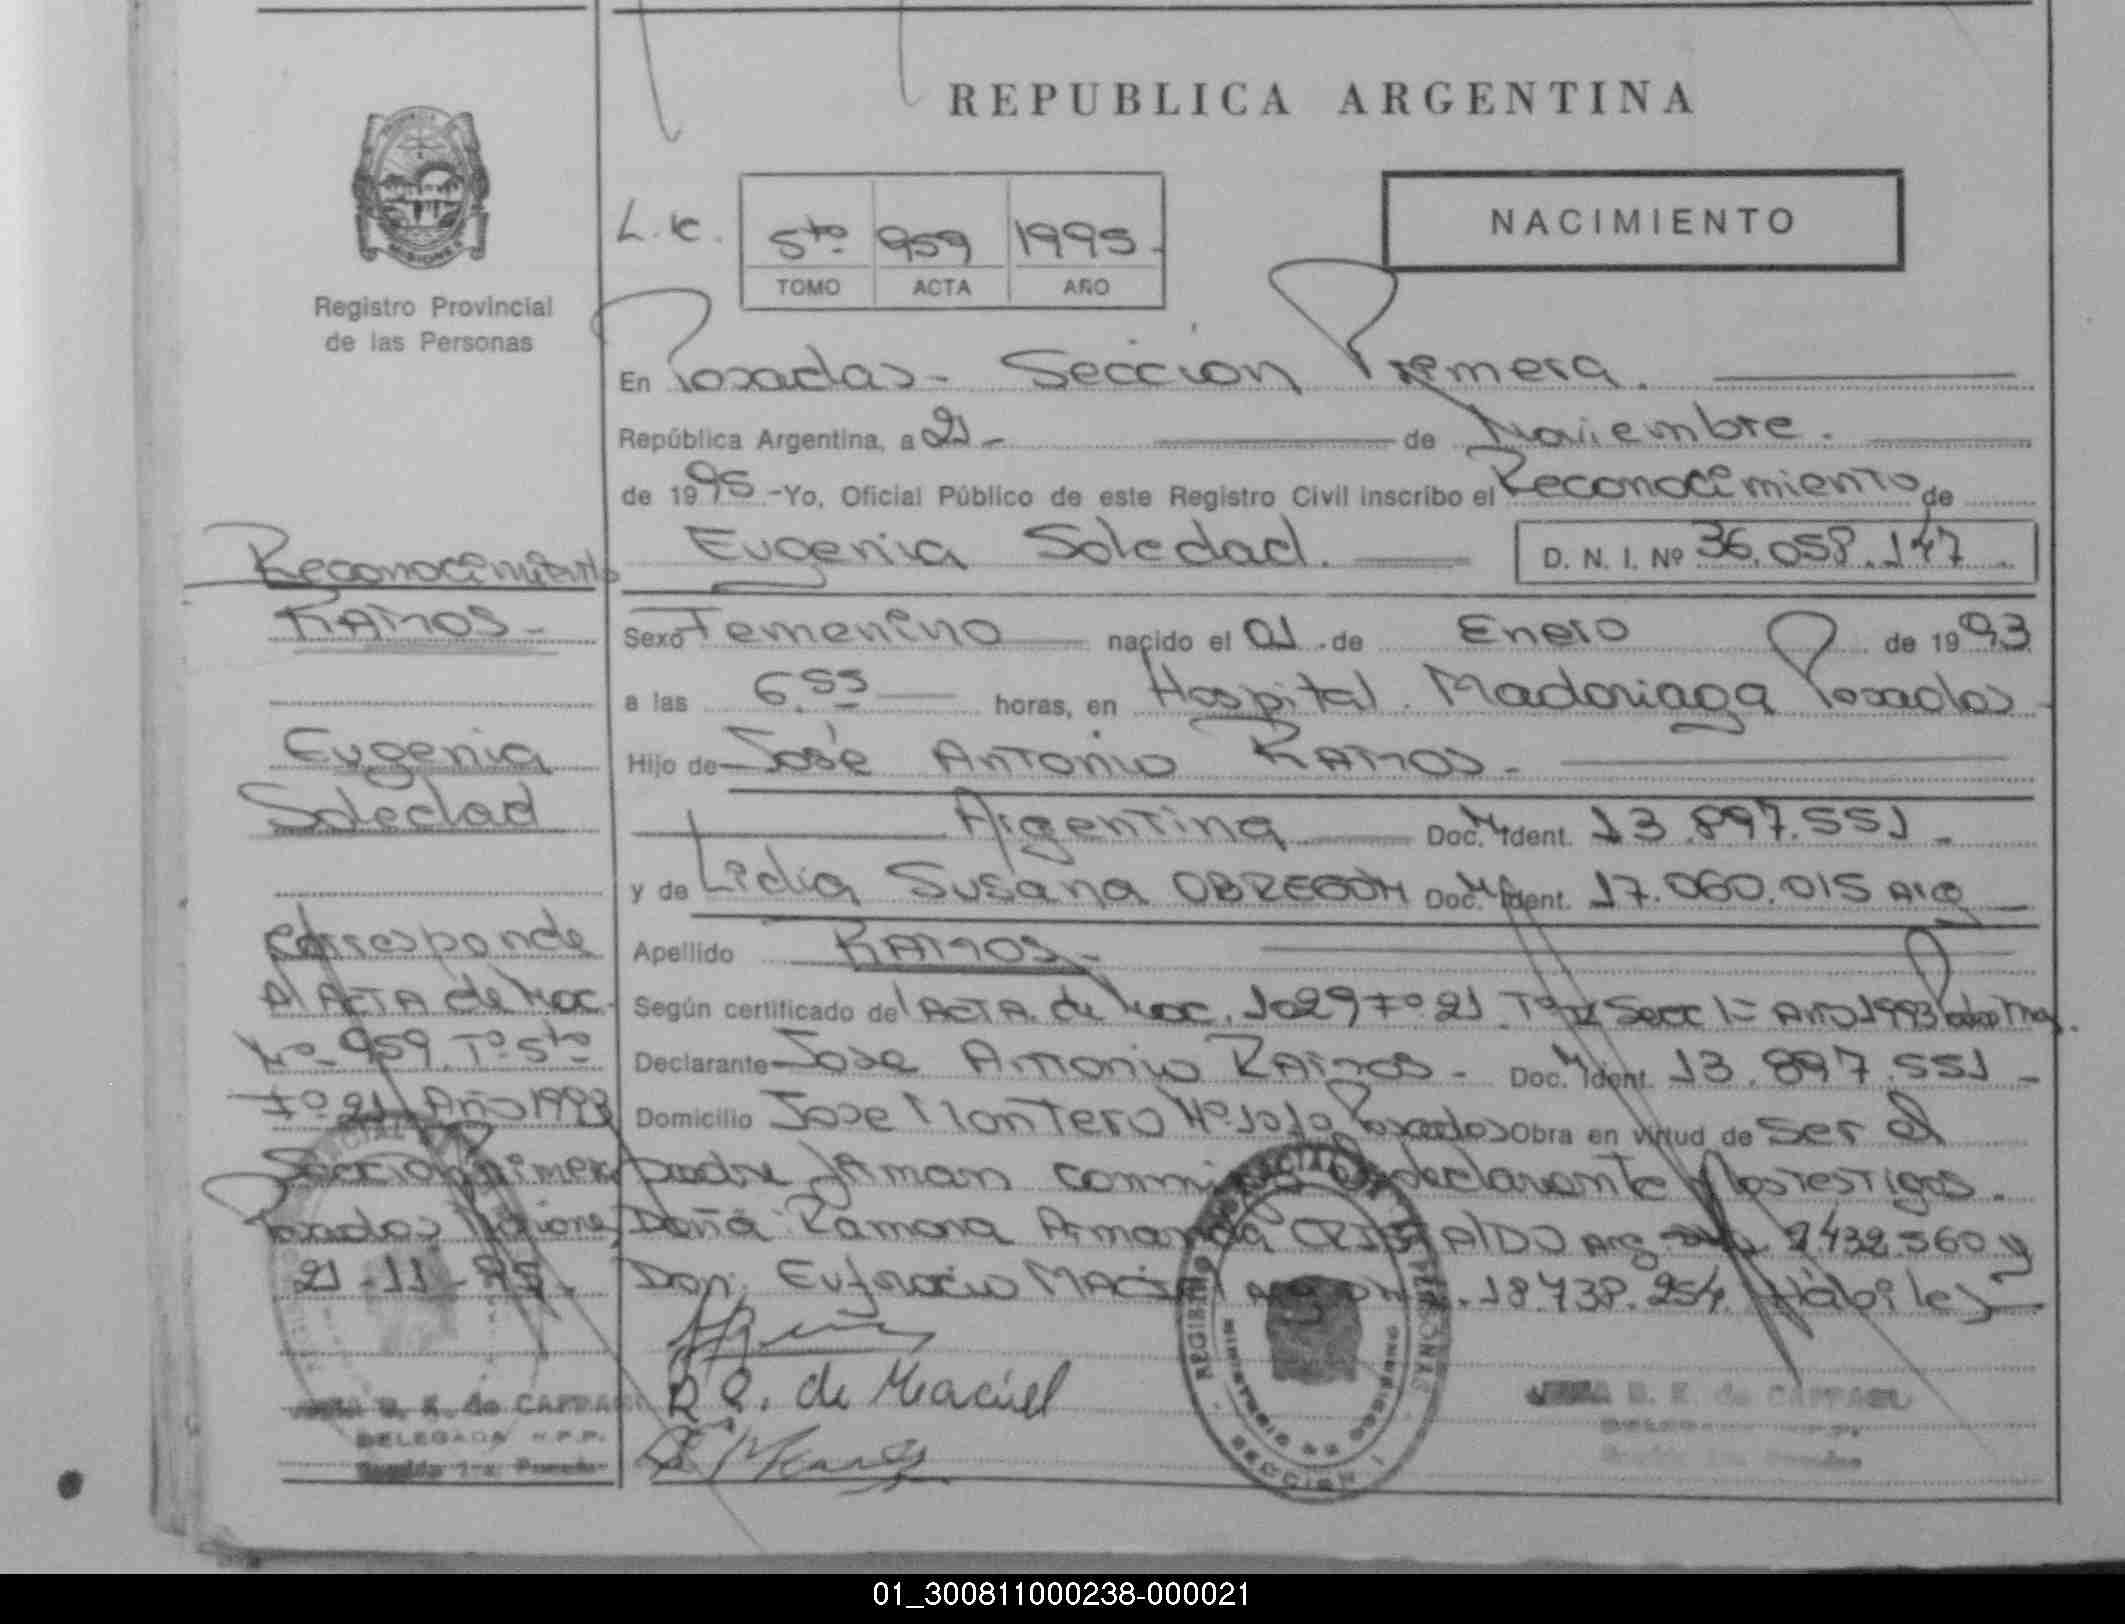 REPUBLICA ARGENTINA
NACIMIENTO
L.c. 5to 959 1995.
TOMO ACTA AÑO
Registro Provincial
de las Personas
En Posadas - Sección Primera.
República Argentina, a 21 - de Noviembre.
de 1995 - Yo, Oficial Público de este Registro Civil inscribo el Reconocimiento de
Eugenia Soledad. D. N. I. Nº 36.058.147.
Sexo Femenino nacido el 01 de Enero de 1993
a las 6.55 horas, en Hospital. Madariaga Posadas
Hijo de José Antonio RAMOS -
Argentina Doc. Ident. 13.897.551 -
y de Lidia Susana OBREGON Doc. Ident. 17.060.015 Arg
Apellido RAMOS -
Según certificado del ACTA de Nac. 1029 Fº 21 Tº Secc 1= Año 1993
Declarante José Antonio RAMOS - Doc. Ident. 13.897.551 -
Domicilio José Montero Nº 1010 Posadas Obra en virtud de ser el
padre firman declarante testigos.
Doña Ramona Amanda Arg 2.432.560 y
Don. Eufracio 18.738.254 Hábiles
R. de Maciel
Reconocimiento
RAMOS -
Eugenia
Soledad
Corresponde
Al ACTA de Nac.
Nº 959 Tº 5to
Fº 21 Año 1993
Sección Primera
Posadas Misiones
21 - 11 - 95.
DELEGADA R.P.P.
REGISTRO PROVINCIAL DE LAS PERSONAS
MINISTERIO DE GOBIERNO
SECCION 1
01_300811000238-000021